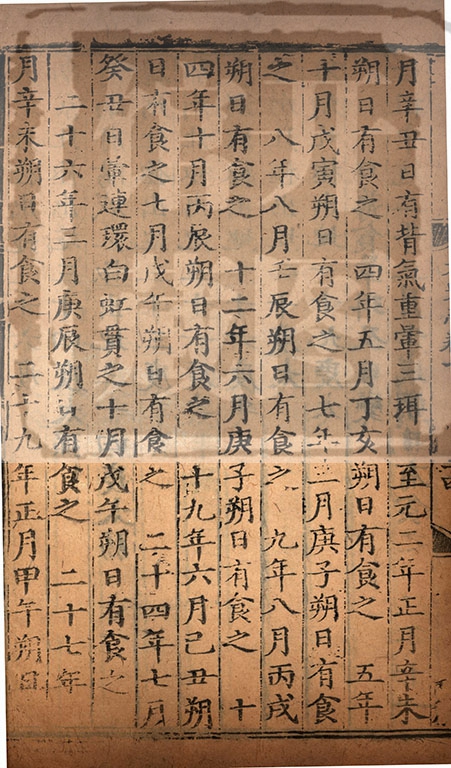 月辛丑日有背氣重暈三珥 至元二年正月辛未
朔日有食之 四年五月丁亥朔日有食之 五年
十月戊寅朔日有食之 七年三月庚子朔日有食
之 八年八月壬辰朔日有食之 九年八月丙戌
朔日有食之 十二年六月庚子朔日有食之 十
四年十月丙辰朔日有食之 十九年六月己丑朔
日有食之七月戊午朔日有食之 二十四年七月
癸丑日暈連環白虹貫之十月戊午朔日有食之
二十六年三月庚辰朔日有食之 二十七年
月辛未朔日有食之 二十九年正月甲午朔日